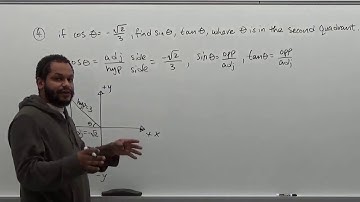 ④ if cos θ = -√2/3, find sin θ, tan θ, where θ is in the second quadrant.
cos θ = adj side / hyp side = -√2/3, sin θ = opp/adj, tan θ = opp/adj
+y
hyp=3
θ
adj=-√2
+ x
-y